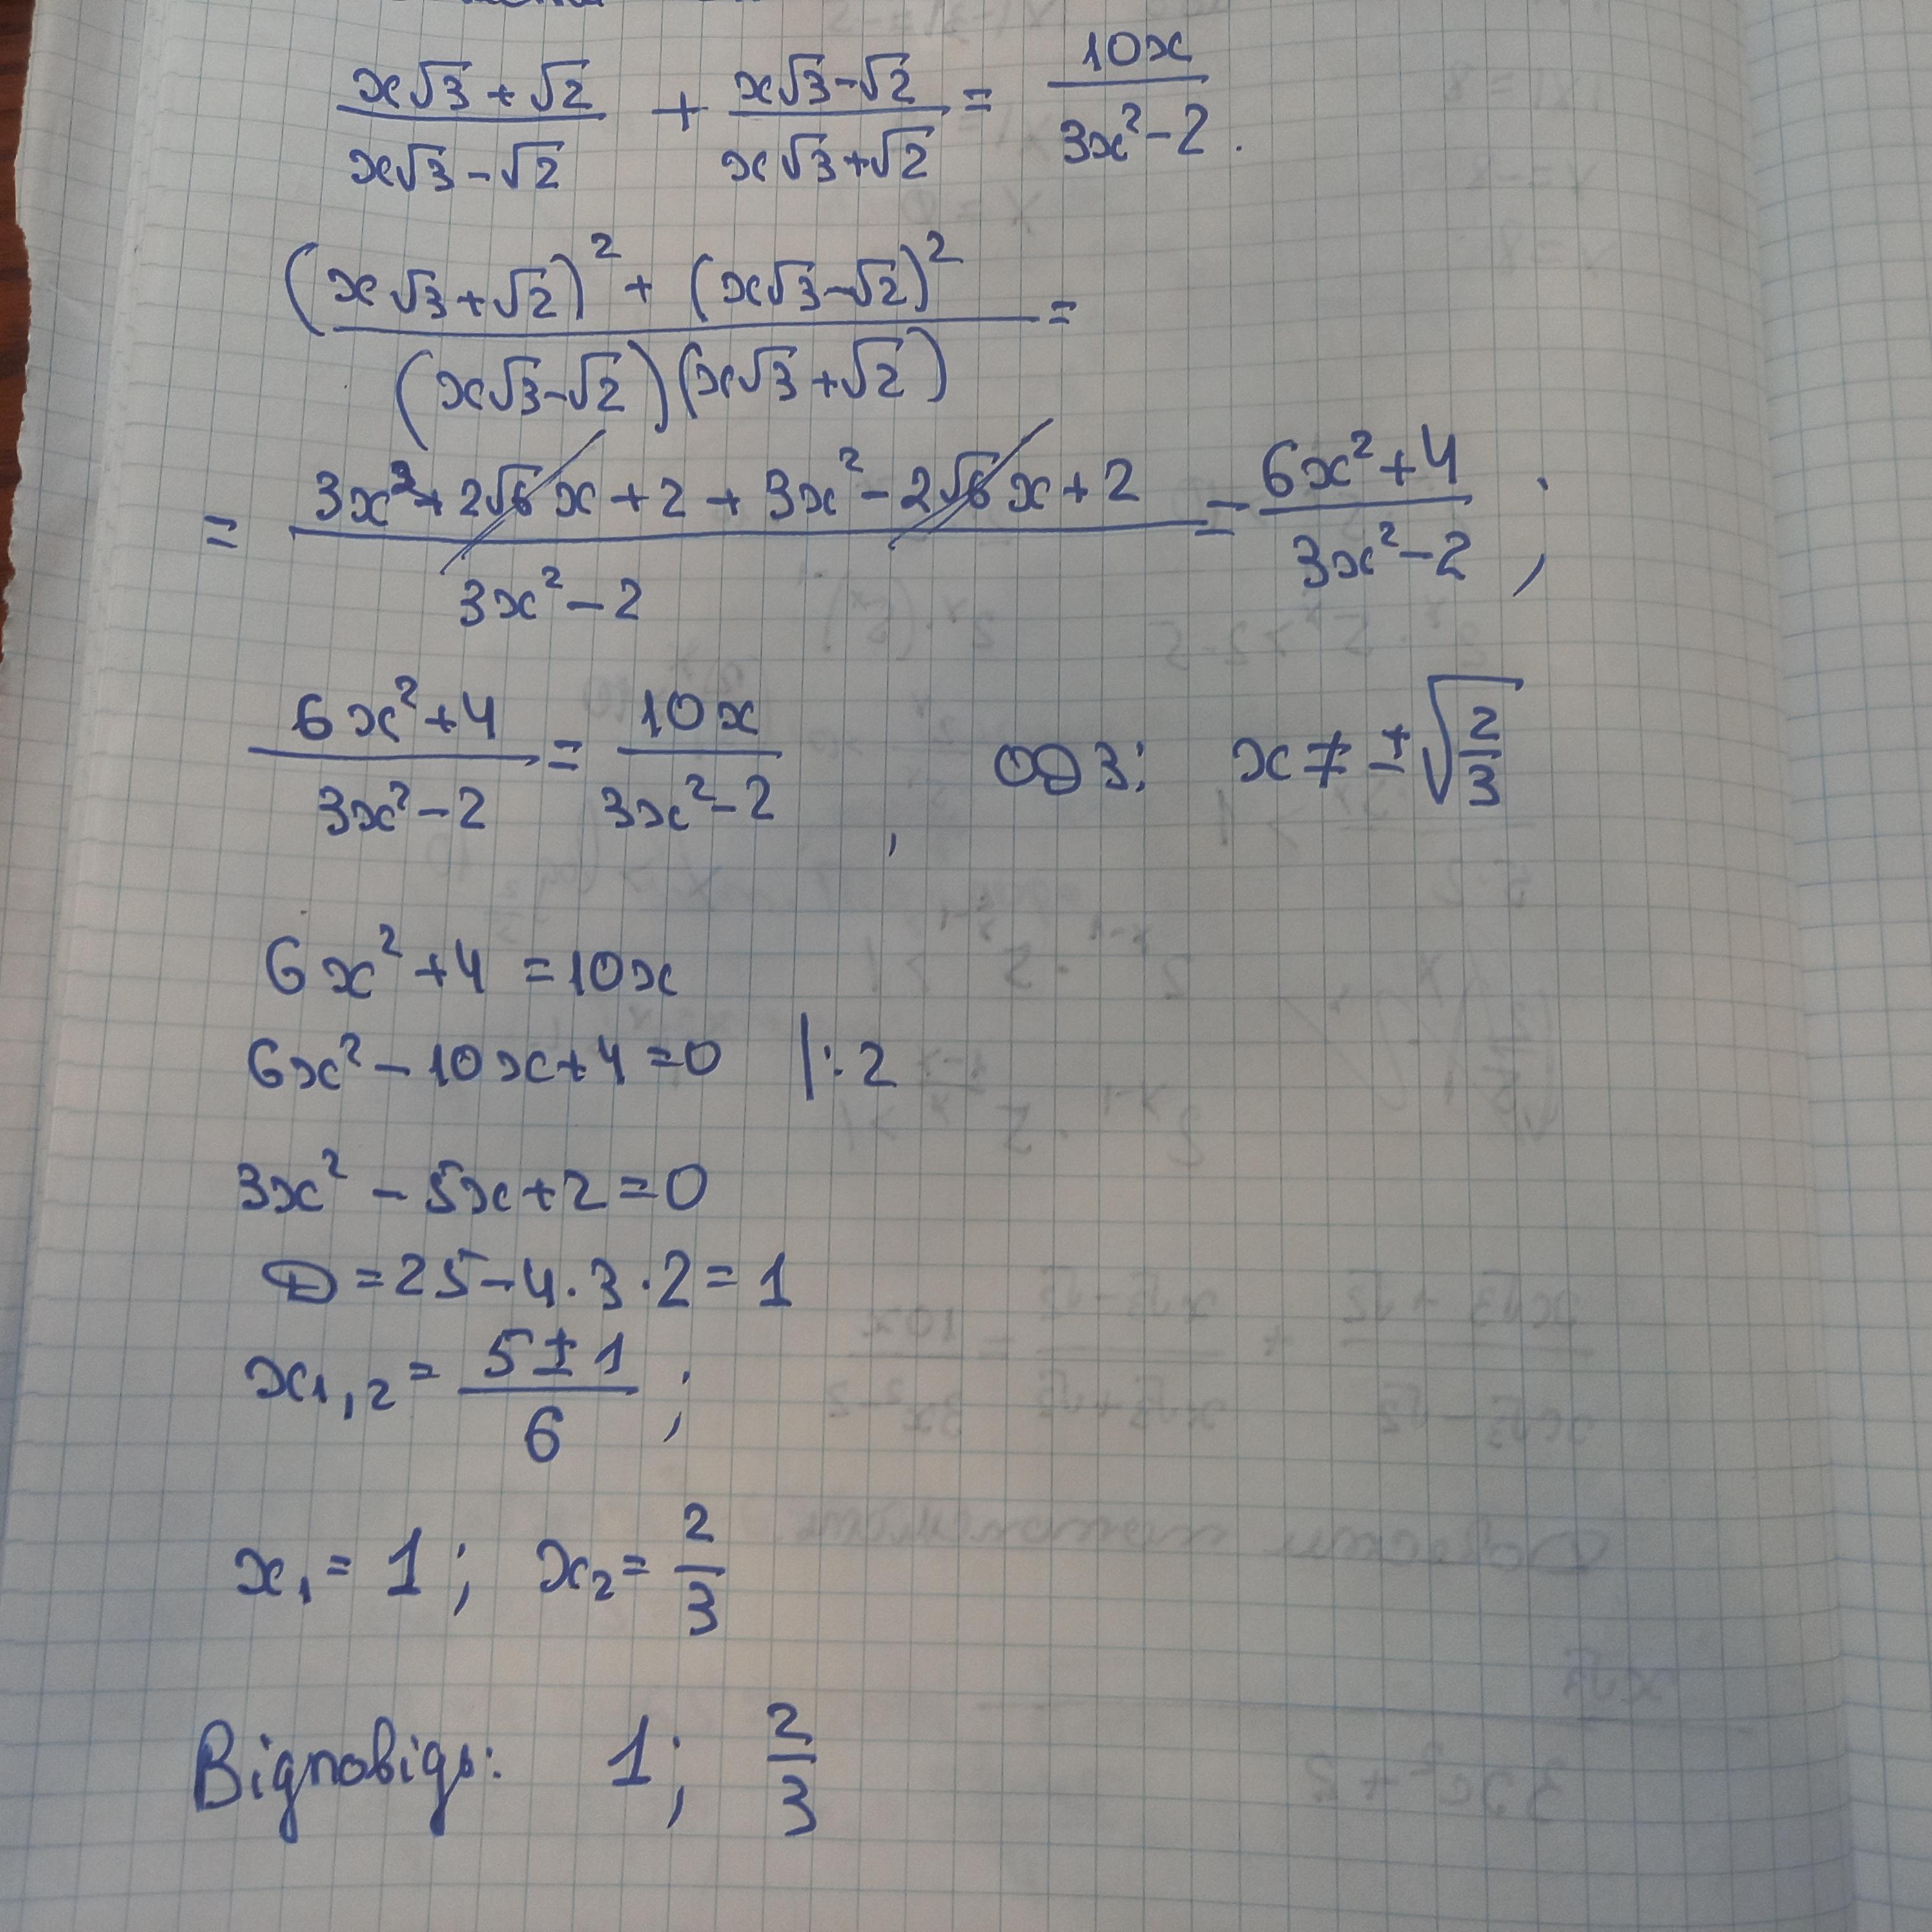 (x√3 + √2)/(x√3 - √2) + (x√3 - √2)/(x√3 + √2) = 10x/(3x² - 2).
((x√3 + √2)² + (x√3 - √2)²)/((x√3 - √2)(x√3 + √2)) =
= (3x² + 2√6x + 2 + 3x² - 2√6x + 2)/(3x² - 2) = (6x² + 4)/(3x² - 2);
(6x² + 4)/(3x² - 2) = 10x/(3x² - 2), ОДЗ: x ≠ ±√(2/3)
6x² + 4 = 10x
6x² - 10x + 4 = 0 |:2
3x² - 5x + 2 = 0
D = 25 - 4·3·2 = 1
x₁,₂ = (5 ± 1)/6;
x₁ = 1; x₂ = 2/3
Відповідь: 1; 2/3